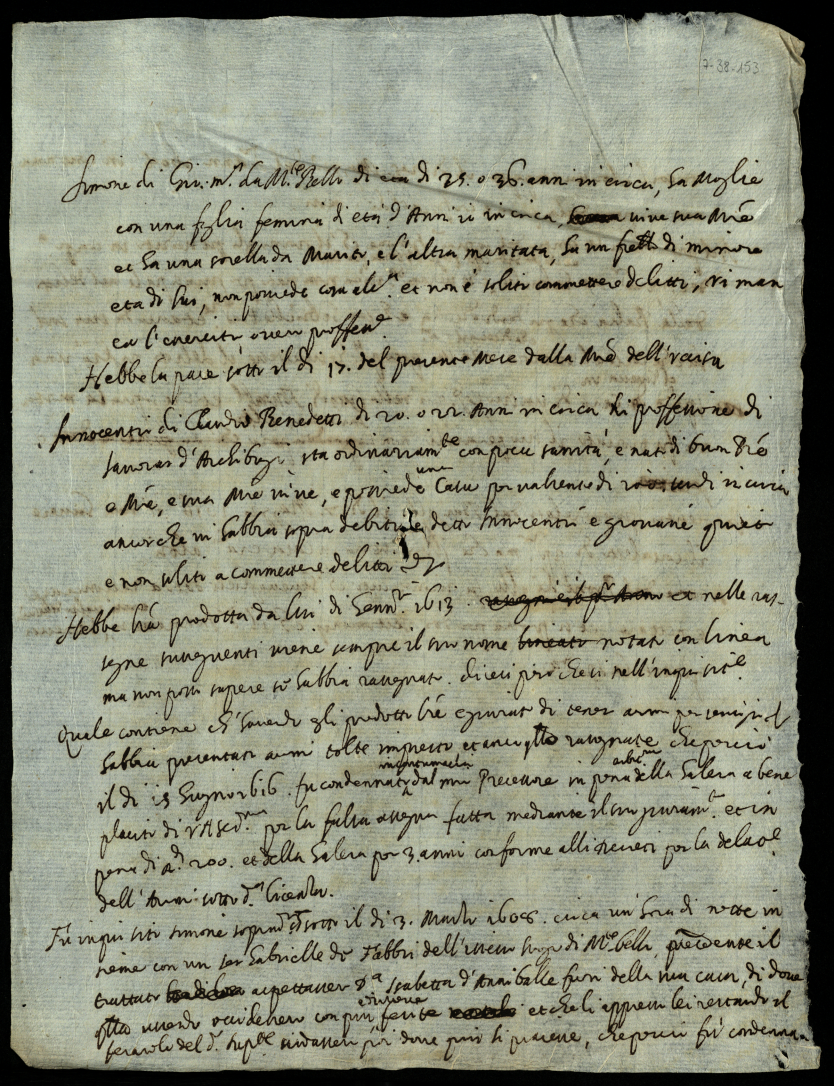 7-38-153
Simone di Gio: m.ª da M.te Bello di età di 25. o 36. anni in circa, ha Moglie
con una figlia femina di età d'Anni in circa, vive sua Mrẽ
et ha una sorella da Marito, e l'altra maritata, ha un frello di minore
eta di lui, non possiede cosa alc.ª et non è solito commettere delitti, vi man
ca l'esercitio overo proffess.e
Hebbe la pace sotto il di 17. del presente Mese dalla Mrẽ dell'uccisa
Innocentio di Claudio Benedetti di 20. o 22. Anni in circa di proffessione di
lavorar d'Archibugi sta ordinariam.te con poca sanità, e nato di buon Prẽ
e Mrẽ, e sua Mrẽ vive, e possiede una Casa per valsente di scudi in circa
ancorche vi habbia sopra debiti, detto Innocentio è giovane quieto
e non solito a commettere delitti
Hebbe lrã prodotta da lui di Genn.º 1613. et nelle ras-
segne susseguenti viene sempre il suo nome lineato notato con linea
ma non posso sapere se habbia rassegnato. dicesi però che si nell'inquisit.e
Quale contiene ch'havendo gli prodotto lrẽ e giurato di tener armi per servitio
habbia presentati armi tolte impresto et anco qllo rassegnate che perciò
il di 15 Giugno 1616. fu condennato in contumacia dal mio Precessore in pena arbi.ria della Galera a bene
placito di V. A. Ser.ma per la falsa assegna fatta mediante il suo giuram.to et in
pena di d.i 200. et della Galera per 3. anni conforme alli decreti per la delat.e
dell'Armi sotto d.ª licenza.
Fu inquisito Simone sopradº sotto il di 3. Marzo 1608. circa un'hora di notte in
sieme con un ser Gabrielle de Fabbri dell'istesso luogo di M.te bello, precedente il
trattato aspettasser d.ª Isabetta d'Anniballe fuori della sua casa, di dove
qllo uscendo occidesser con più et diverse ferite et che li appresso lei restando il
feraiolo del d.º Sup.te andasser poi dove più li piacesse, che perciò fu condennato